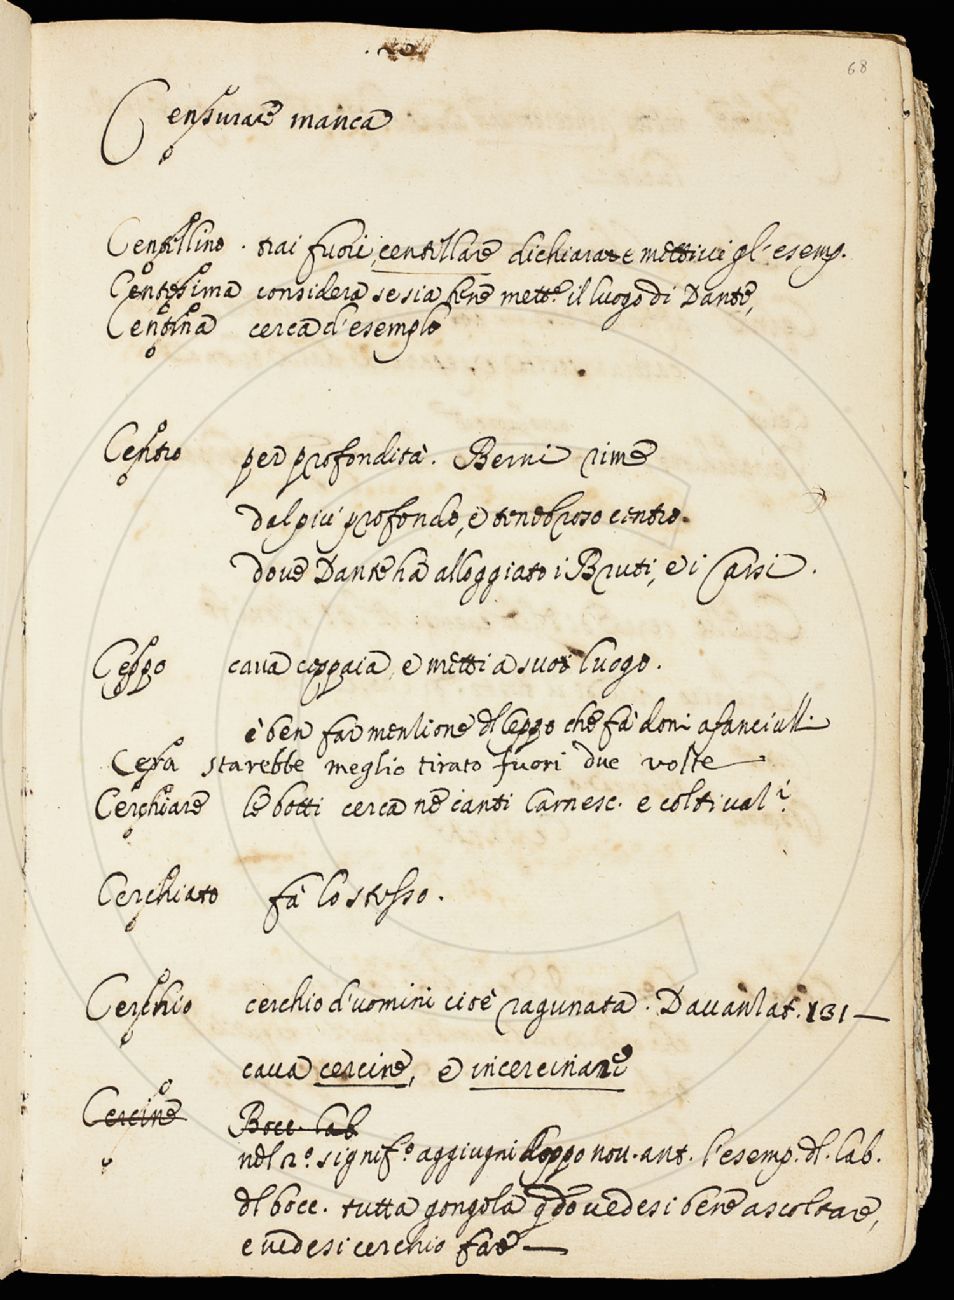 68
Censurare manca
Centillino . trai fuori, centillare dichiarare mettivi gl'esemp.
Centesima considera se sia bene mett.e il luogo di Dante,
Centina cerca d'esemplo
Centro per profondità. Berni rime
dal più profondo, e tenebroso centro.
dove Dante ha alloggiato i Bruti, e i Cassi.
Ceppo cava ceppaia, e metti a suo luogo.
è ben far menzione dl Ceppo che fà doni a fanciulli
Cera starebbe meglio tirato fuori due volte
Cerchiare le botti cerca ne canti Carnesc. e coltival.i
Cerchiato fà lo stesso.
Cerchio cerchio d'uomini cioè ragunata. Davanzat. 131
cava cercine, e incercinare
Cercine Bocc. Lab
nel 2.o signif.o aggiugni doppo nov. ant. l'esemp. dl. Lab.
dl bocc. tutta gongola qdo vedesi bene ascoltare,
e vedesi cerchio fare